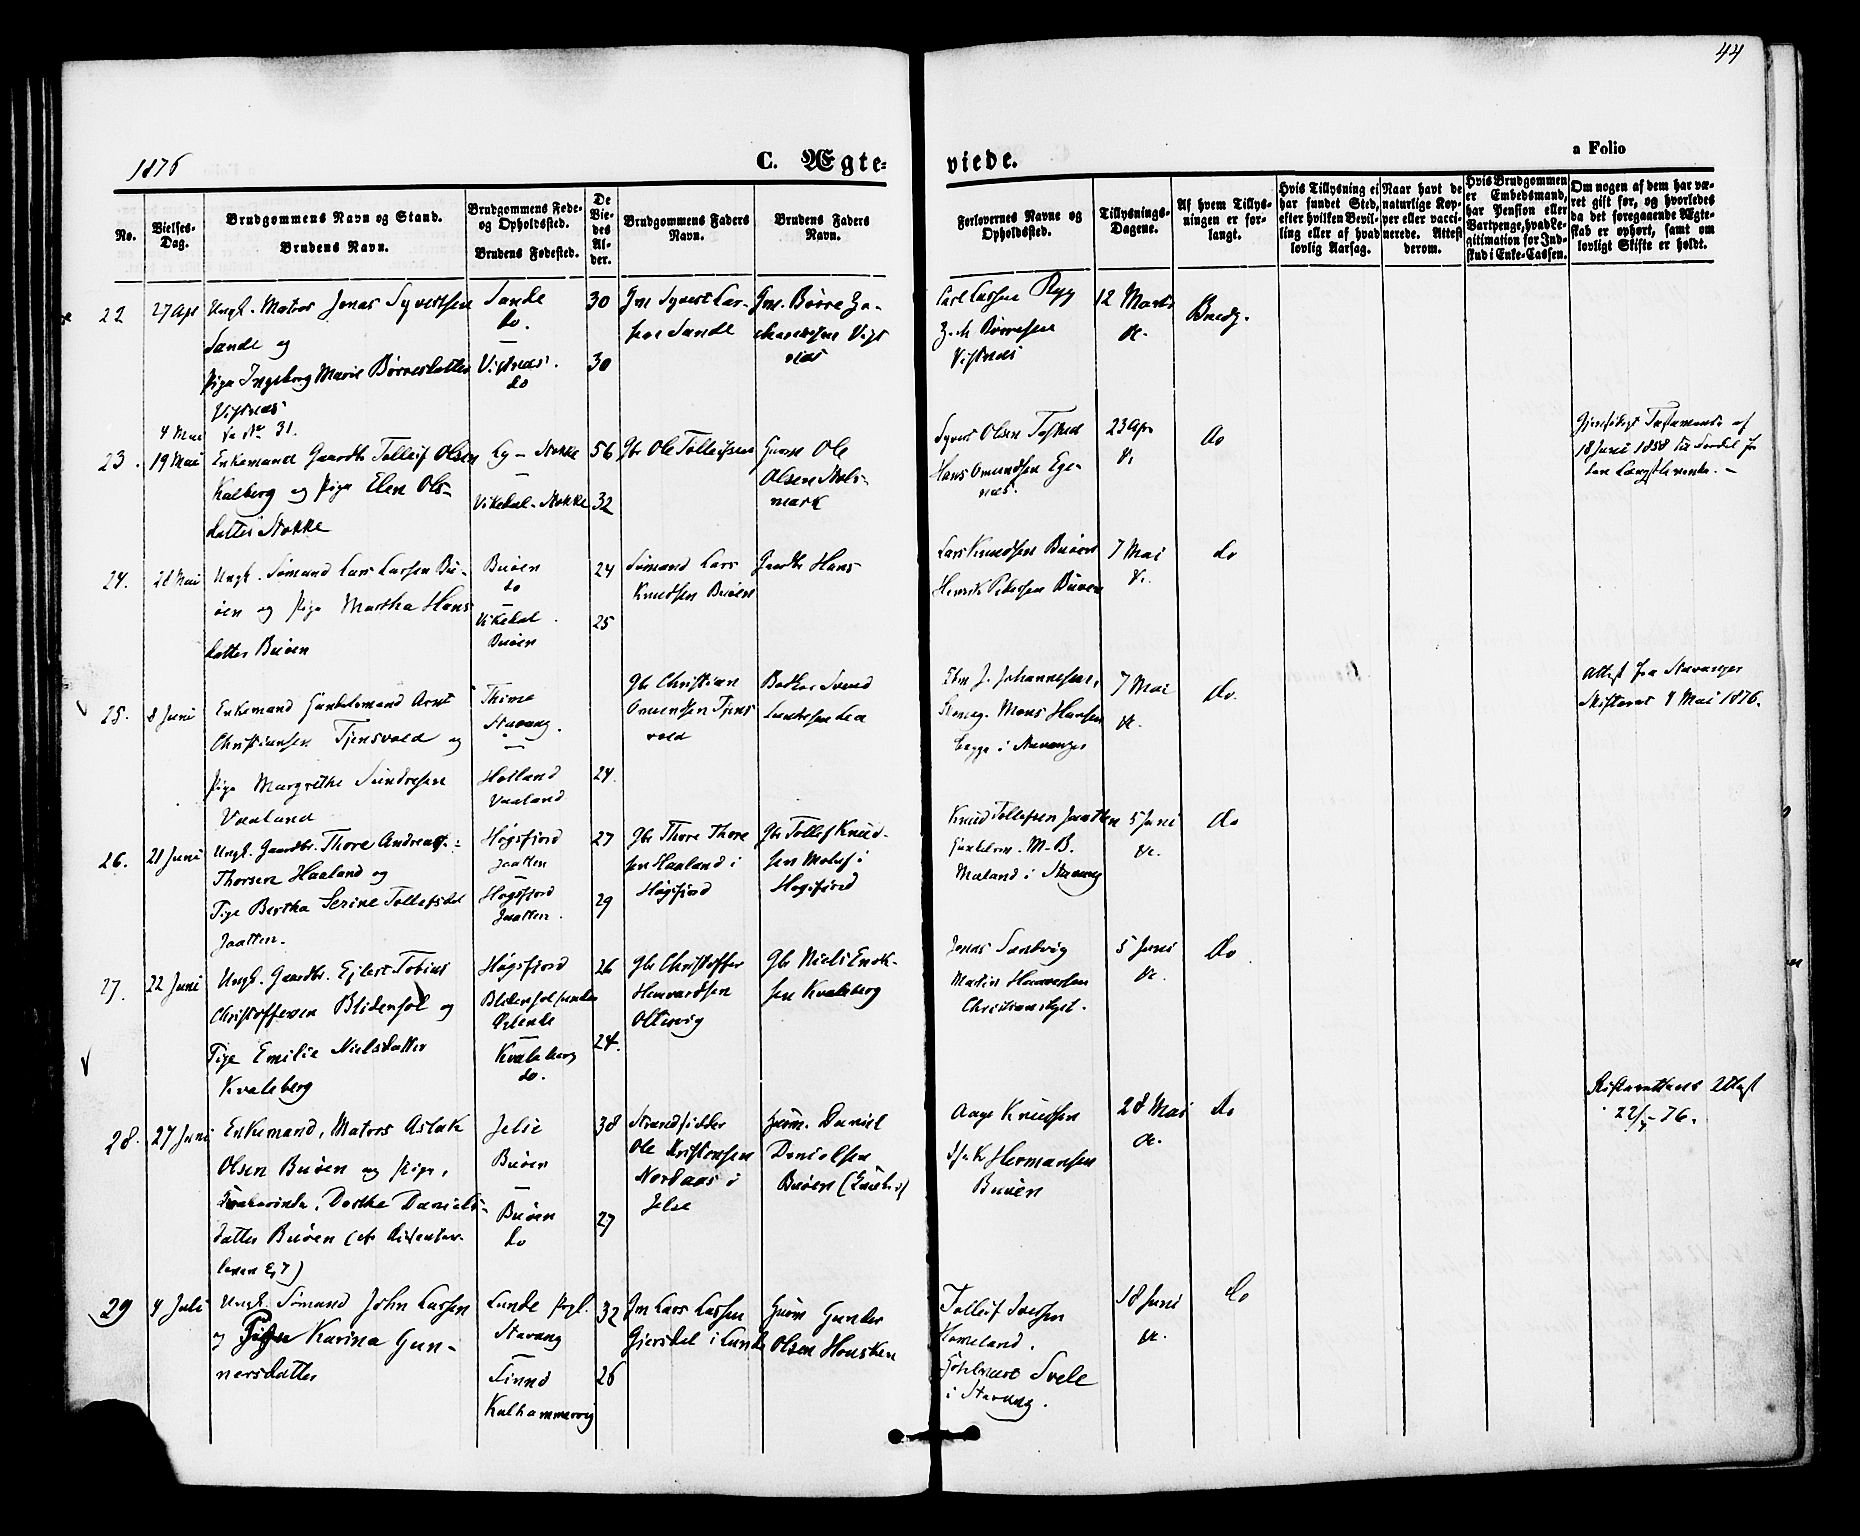 44
1876
C. Ægte-
viede.
a Folio
No.
Vielses-
Dag.
Brudgommens Navn og Stand.
Brudens Navn.
Brudgommens Føde-
og Opholdssted.
Brudens Fødested.
De
Vie-
des
Al-
der.
Brudgommens Faders
Navn.
Brudens Faders
Navn.
Forlovernes Navne og
Opholdssted.
Tillysnings-
Dagene.
Af hvem Tillys-
ningen er for-
langt.
Hvis Tillysning ei
har fundet Sted,
efter hvilken Bevil-
ling eller af hvad
lovlig Aarsag.
Naar havt de
naturlige Kop-
per eller vacci-
nerede. Attest
derom.
Hvis Brudgommen
er Embedsmand,
har Pension eller
Vartpenge, hvad Le-
gitimation for Ind-
skud i Enke-Cassen.
Om nogen af dem har væ-
ret gift før, og hvorledes
da det foregaaende Ægte-
skab er ophørt, samt om
lovligt Skifte er holdt.
22
27 Apr
Ungk. Matros Jonas Syvertsen
Sande og
Pige Ingeborg Marie Børresdatter
Vistnæs
Sande
do.
Vistnæs.
do
30
30
Gm Syvert Lar-
sen Sande
Gm. Børre Za-
chariasen Vist
næs
Carl Larsen Ryg
Z. M. Børresen
Vistnæs
12 Marts
Brudg.
4 Mai
No 31.
23.
19 Mai
Enkemand Gaardbr Tolleif Olsen
Kalberg og Pige Elen Ols-
datter Stokke
Ly - Stokke
Vikedal - Stokke
56
32
Gbr Ole Tolleifsen
Ole
Olsen
mark
Syvert Olsen
Hans Omundsen Ege-
næs.
23 Apr
do
Gjensidigt Testamente af
18 Juni 1858
den Længstlevende. -
24.
21 Mai
Ungk. Sømand Lars Larsen Bu-
øen og Pige Martha Hans
datter Buøen
Buøen
do
Vikedal
Buøen
24
25
Sømand Lars
Knudsen Buøen
Gaardbr Hans
Lars Knudsen Buøen
Henrik Pedersen Buøen
7 Mai
do
25.
8 Juni
Enkemand Handelsmand Arnt
Christiansen Tjensvold og
Pige Margrethe Sundresen
Vaaland
Thime
Stavang.
Hetland
Vaaland
24.
Gbr Christian
Omundsen Tjens
vold
Bødker Svend
J. Johannessen,
Mons Hansen
begge i Stavanger
7 Mai
do.
Attest fra Stavanger
Skifteret 4 Mai 1876.
26.
21 Juni
Ungk. Gaardbr. Thore Andreas
Thorsen Haaland og
Pige Bertha Serine Tollefsdat
Jaatten.
Høgsfjord
Jaatten
Høgsfjord
Jaatten.
27
29
Gbr Thore Thore
sen Haaland i
Høgsfjord
Gbr Tollef Knud-
sen i
Høgsfjord
Knud Tollefsen Jaatten
M. B.
Meland i Stavang
5 Juni
do
27.
22 Juni
Ungk. Gaardbr. Ejlert Tobias
Christoffersen Blidensol og
Pige Emilie Nielsdatter
Kvaleberg
Høgsfjord
Blidensol
Kvaleberg
do.
26
24.
Gbr Christoffer
Oltesvig
Gbr Niels Enok-
sen Kvaleberg
Jonas Sandvig
Martin
5 Juni
do
28.
27 Juni
Enkemand, Matros Aslak
Olsen Buøen og Pige,
Dorthe Daniels-
datter Buøen
Jelse
Buøen
Buøen
do
38
27
Strandsidder
Ole Kristensen
Nordaas i
Jelse
Daniel
Danielsen
Buøen
Aage Knudsen
Hermansen
Buøen
28 Mai
do
Skifterettens Attest
29
4 Juli
Ungk. Sømand John Larsen
og Pige Karina Gun-
nersdatter
Lunde
Stavang
Finnø
Kalhammervig
32
26
Gm Lars Larsen
Gjersdal i Lunde
Gunder
Olsen Hausken
Tolleif Iversen
Svele
i Stavang.
18 Juni
do